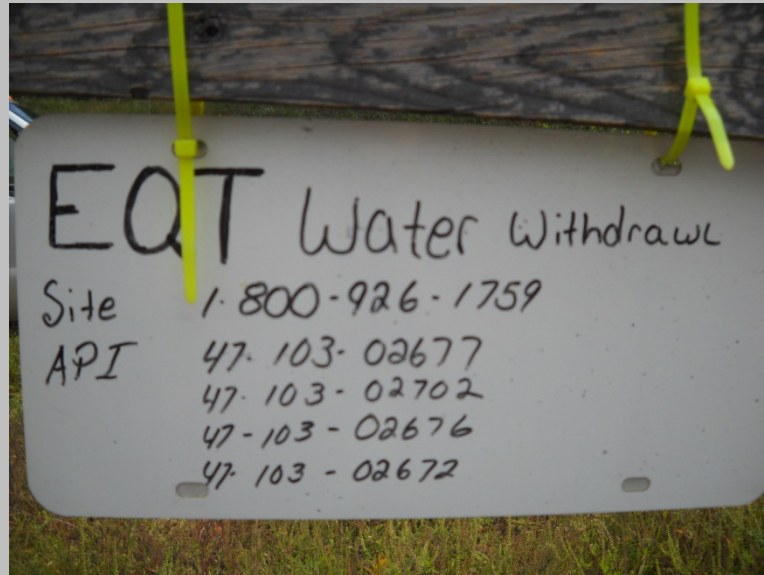 EQT Water Withdrawl
Site 1-800-926-1759
API 47-103-02677
47-103-02702
47-103-02676
47-103-02672